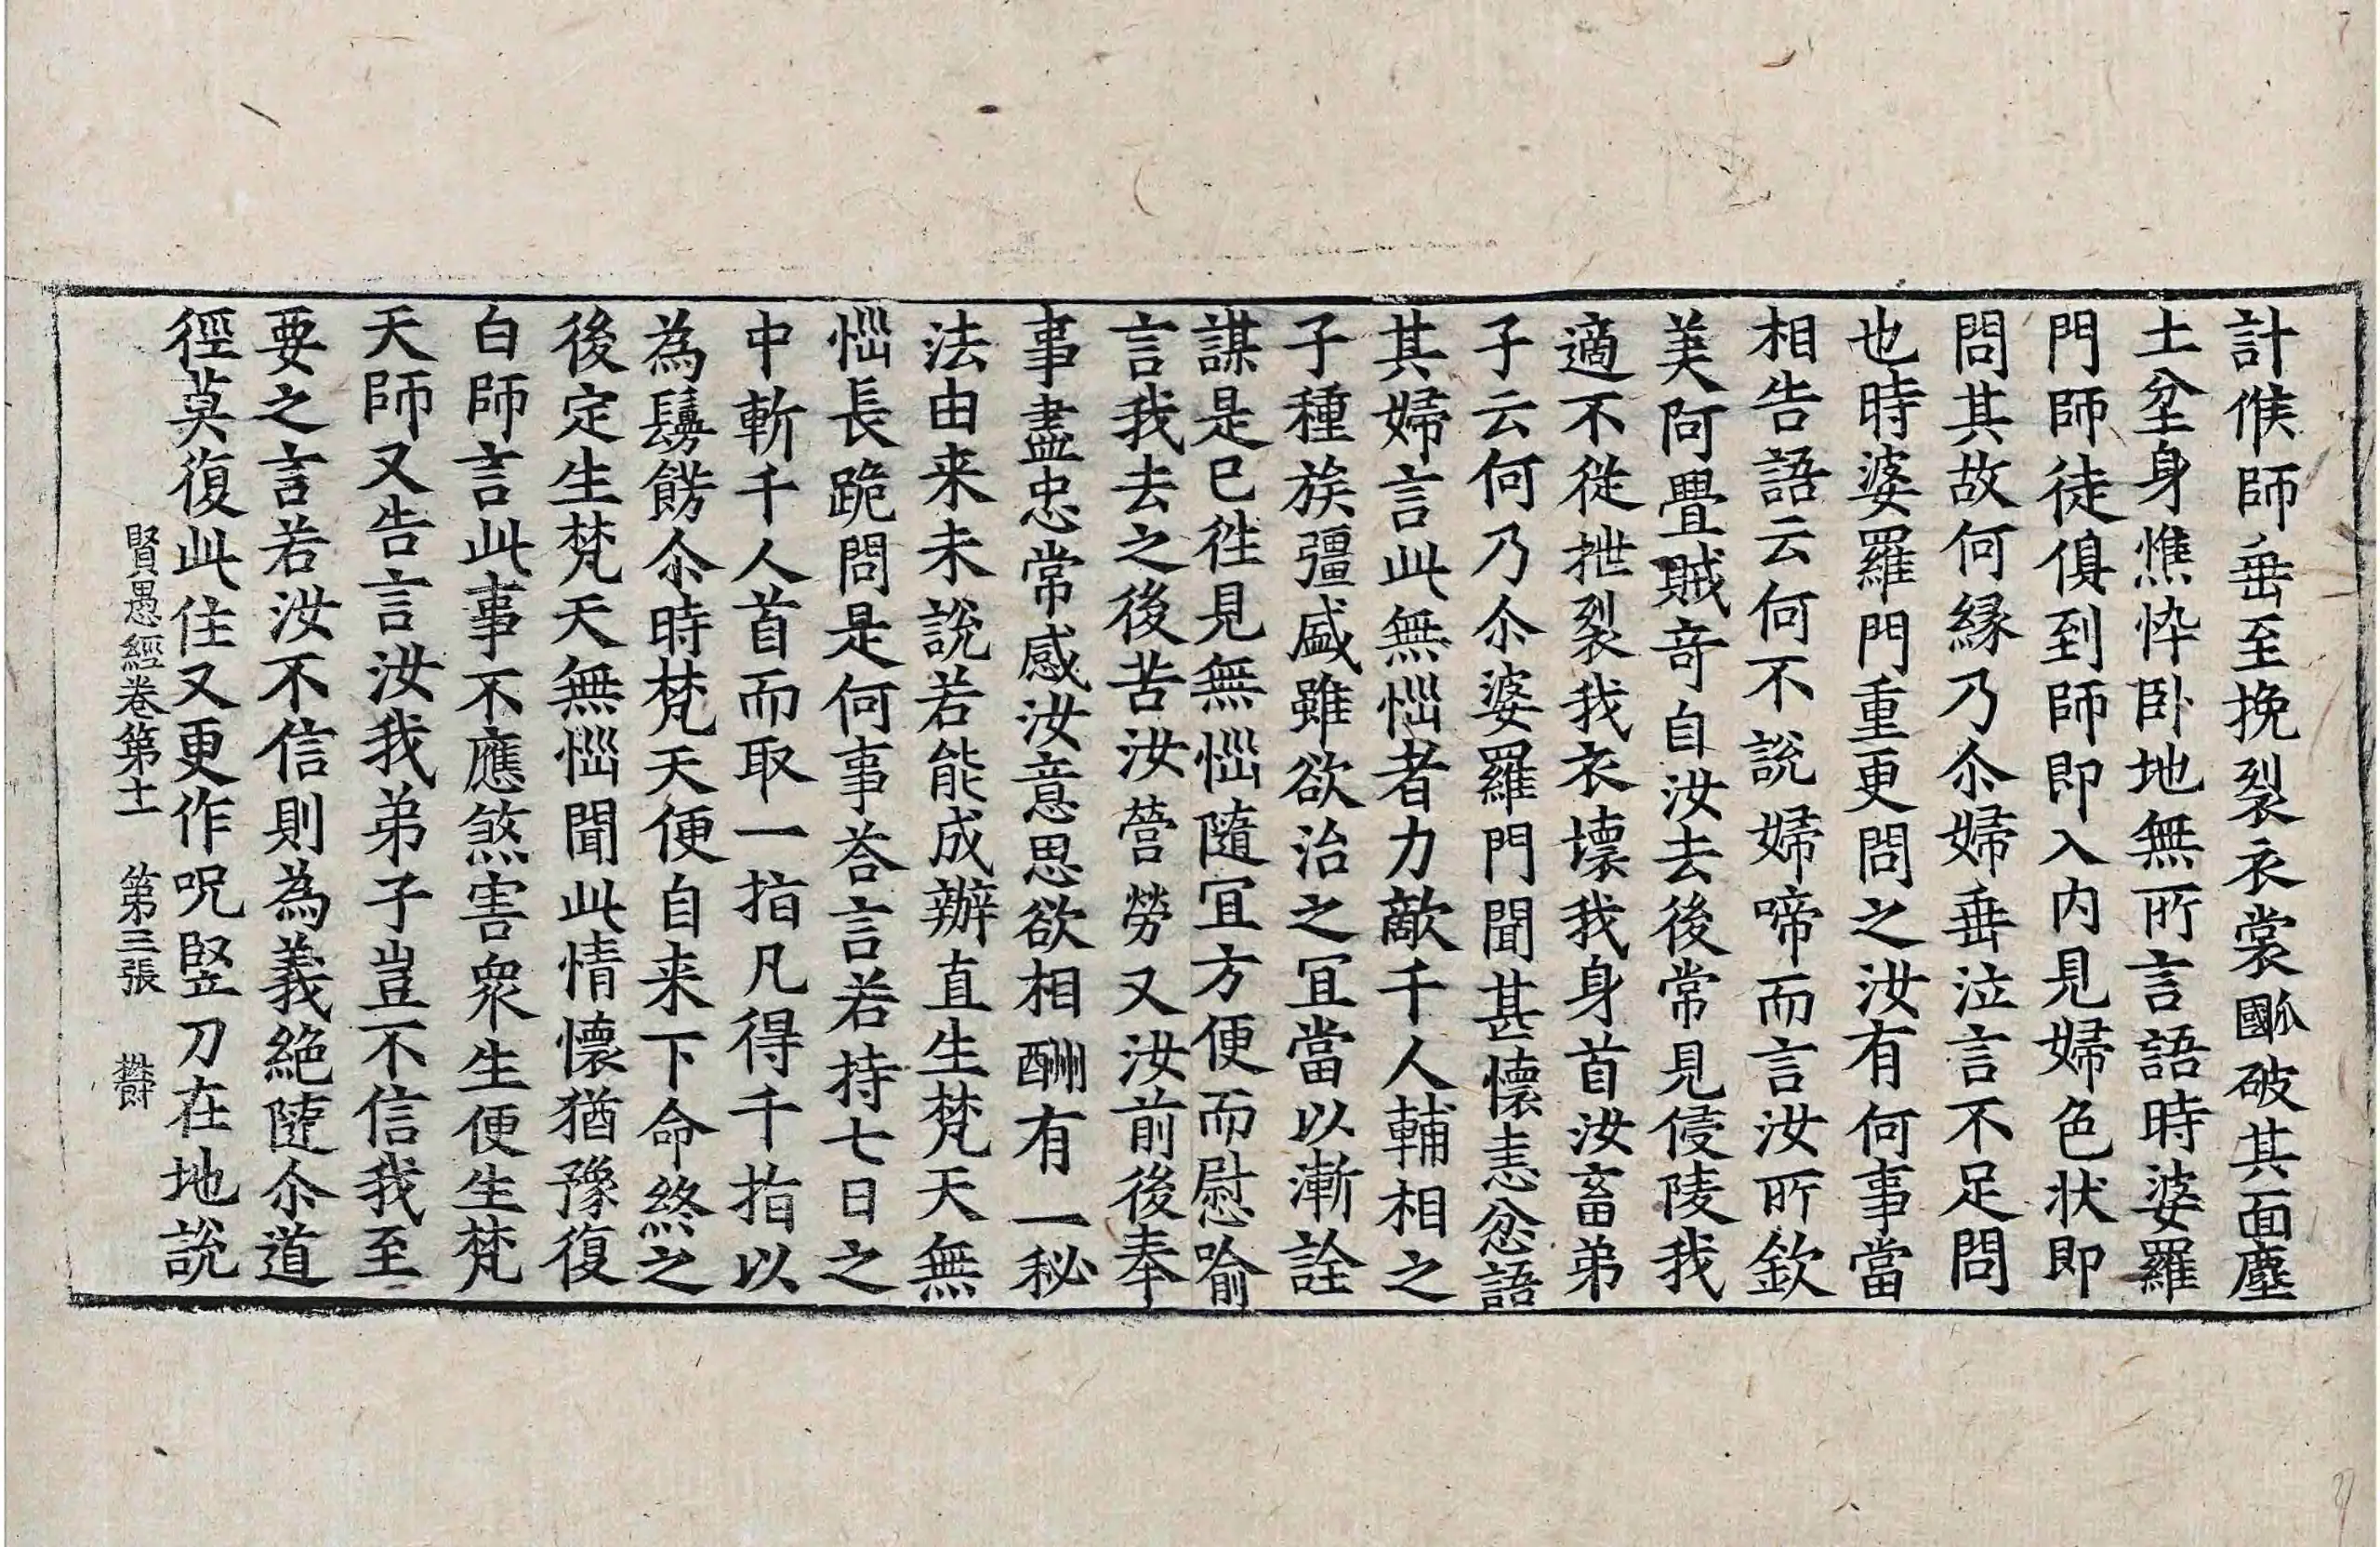 計候師垂至挽裂衣裳𡇈破其面塵
土坌身憔悴卧地無所言語時婆羅
門師徒俱到師即入内見婦色状即
問其故何縁乃尒婦垂泣言不足問
也時婆羅門重更問之汝有何事當
相告語云何不說婦啼而言汝所欽
美阿㽮賊奇自汝去後常見侵陵我
適不從抴裂我衣壞我身首汝畜弟
子云何乃尒婆羅門聞甚懷恚忿語
其婦言此無惱者力敵千人輔相之
子種族彊盛雖欲治之冝當以漸詮
謀是已往見無惱隨冝方便而慰喻
言我去之後苦汝營勞又汝前後奉
事盡忠常感汝意思欲相酬有一秘
法由来未說若能成辦直生梵天無
惱長跪問是何事荅言若持七日之
中斬千人首而取一指凡得千指以
為鬘餝尒時梵天便自来下命終之
後定生梵天無惱聞此情懷猶豫復
白師言此事不應煞害衆生便生梵
天師又告言汝我弟子豈不信我至
要之言若汝不信則為義絶隨尒道
徑莫復此住又更作呪竪刀在地說
賢愚經卷第十一 第三張